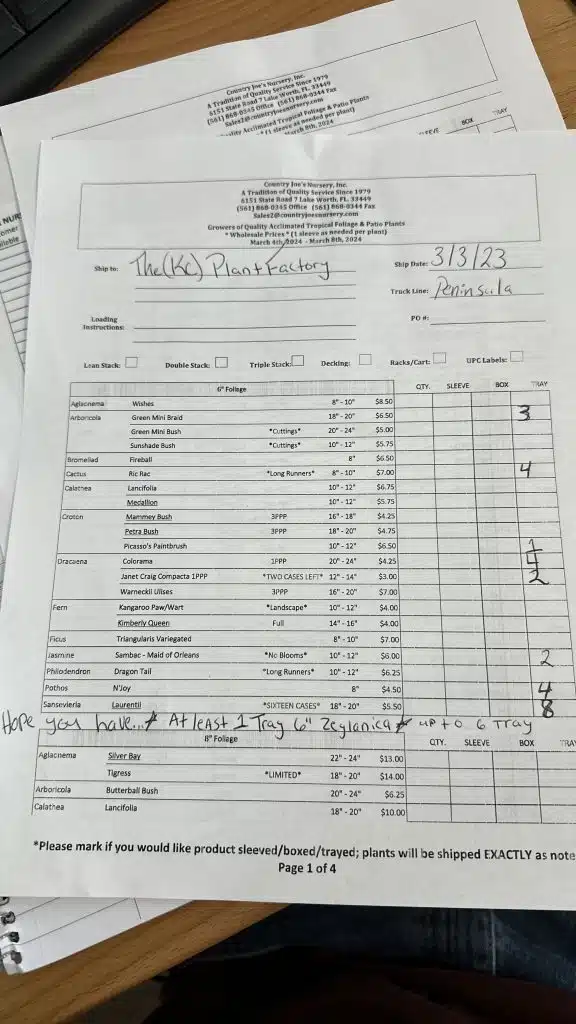 Country Joe's Nursery, Inc.
A Tradition of Quality Service Since 1979
6151 State Road 7 Lake Worth, FL. 33449
(561) 868-0345 Office (561) 868-0344 Fax
Sales2@countryjoesnursery.com
ality Acclimated Tropical Foliage & Patio Plants
* (1 sleeve as needed per plant)
March 8th, 2024
SLEEVE BOX TRAY
NUR
omer
ilable
Country Joe's Nursery, Inc.
A Tradition of Quality Service Since 1979
6151 State Road 7 Lake Worth, FL 33449
(561) 868-0345 Office (561) 868-0344 Fax
Sales2@countryjoesnursery.com
Growers of Quality Acclimated Tropical Foliage & Patio Plants
*Wholesale Prices* (1 sleeve as needed per plant)
March 4th, 2024 - March 8th, 2024
Ship to: The (KC) Plant Factory Ship Date: 3/3/23
Truck Line: Peninsula
Loading Instructions: PO #:
Lean Stack: Double Stack: Triple Stack: Decking: Racks/Cart: UPC Labels:
6" Foliage QTY. SLEEVE BOX TRAY
Aglacnema Wishes 8" - 10" $8.50
Arboricola Green Mini Braid 18" - 20" $6.50 3
Green Mini Bush *Cuttings* 20" - 24" $5.00
Sunshade Bush *Cuttings* 10" - 12" $5.75
Bromeliad Fireball 8" $6.50
Cactus Ric Rac *Long Runners* 8" - 10" $7.00 4
Calathea Lancifolia 10" - 12" $6.75
Medallion 10" - 12" $5.75
Croton Mammey Bush 3PPP 16" - 18" $4.25
Petra Bush 3PPP 18" - 20" $4.75
Picasso's Paintbrush 10" - 12" $6.50 1
Dracaena Colorama 1PPP 20" - 24" $4.25 4
Janet Craig Compacta 1PPP *TWO CASES LEFT* 12" - 14" $3.00 2
Warneckii Ulises 3PPP 16" - 20" $7.00
Fern Kangaroo Paw/Wart *Landscape* 10" - 12" $4.00
Kimberly Queen Full 14" - 16" $4.00
Ficus Triangularis Variegated 8" - 10" $7.00
Jasmine Sambac - Maid of Orleans *No Blooms* 10" - 12" $6.00 2
Philodendron Dragon Tail *Long Runners* 10" - 12" $6.25
Pothos N'Joy 8" $4.50 4
Sansevieria Laurentii *SIXTEEN CASES* 18" - 20" $5.50 8
Hope you have... * At least 1 Tray 6" Zeylanica * up to 6 Tray
8" Foliage QTY. SLEEVE BOX TRA
Aglacnema Silver Bay 22" - 24" $13.00
Tigress *LIMITED* 18" - 20" $14.00
Arboricola Butterball Bush 20" - 24" $6.25
Calathea Lancifolia 18" - 20" $10.00
*Please mark if you would like product sleeved/boxed/trayed; plants will be shipped EXACTLY as note
Page 1 of 4